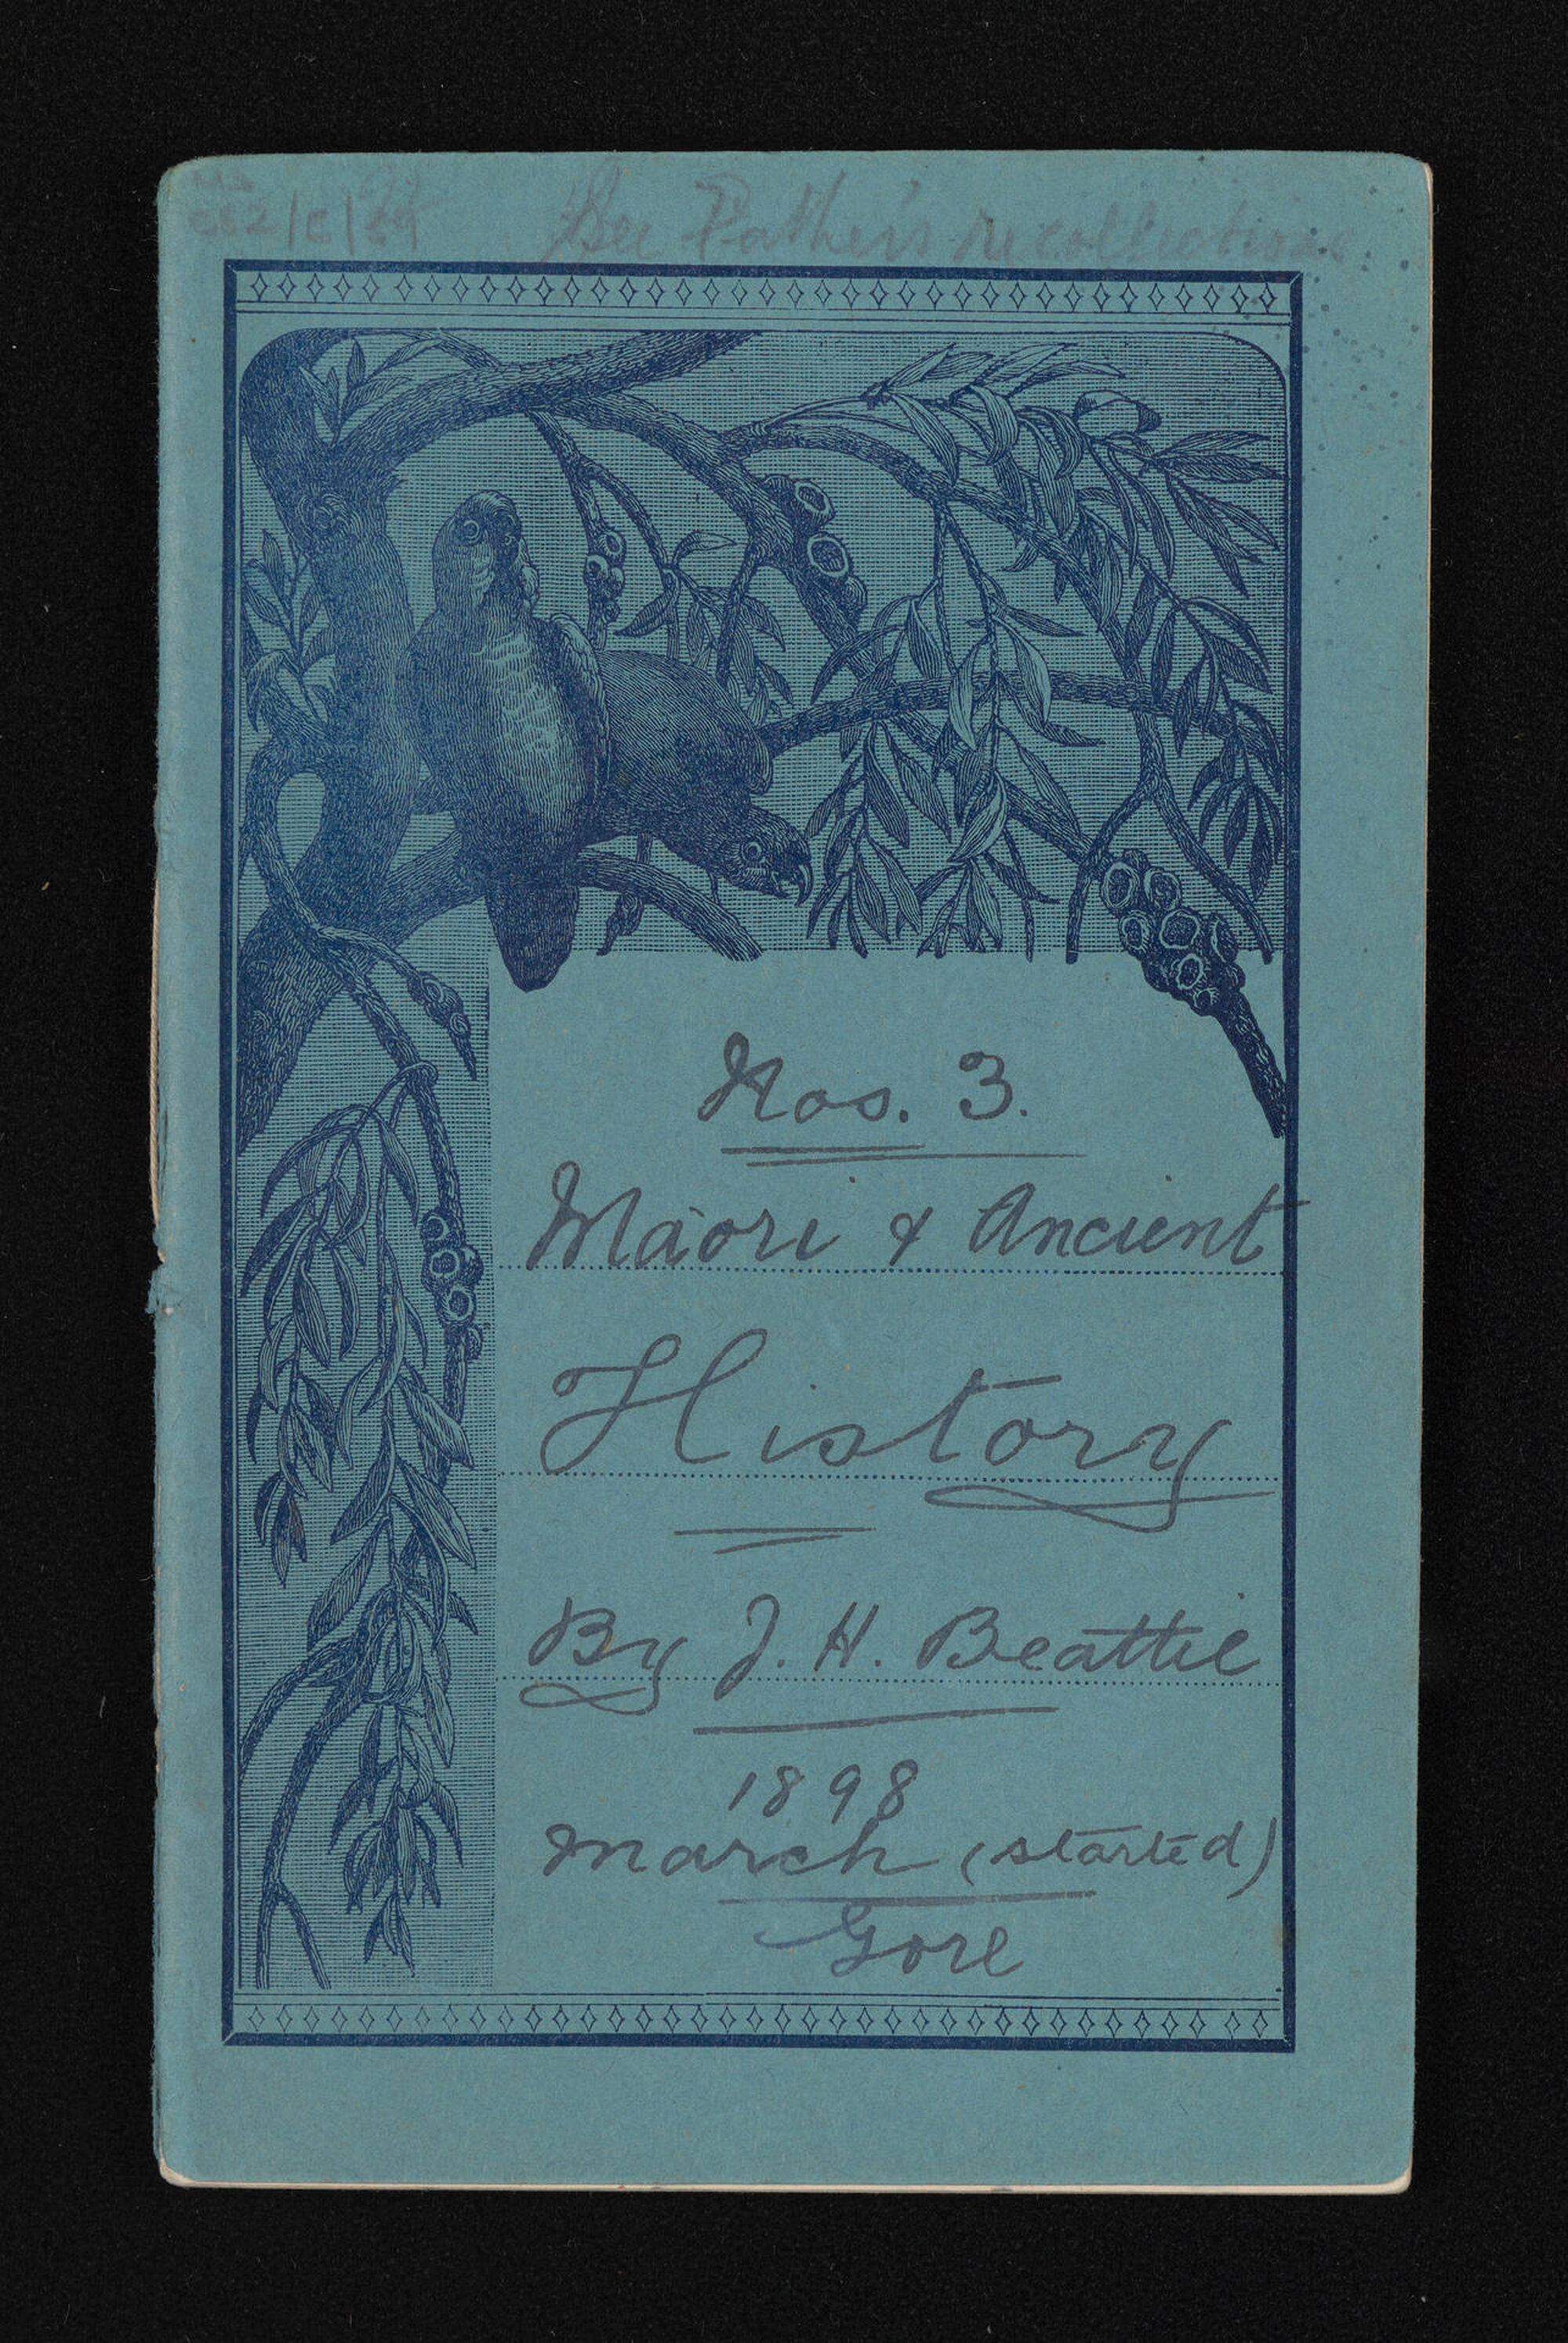 See Father's recollections
Nos. 3.
Maori & Ancient
History
By J. H. Beattie
1898
March (started)
Gore